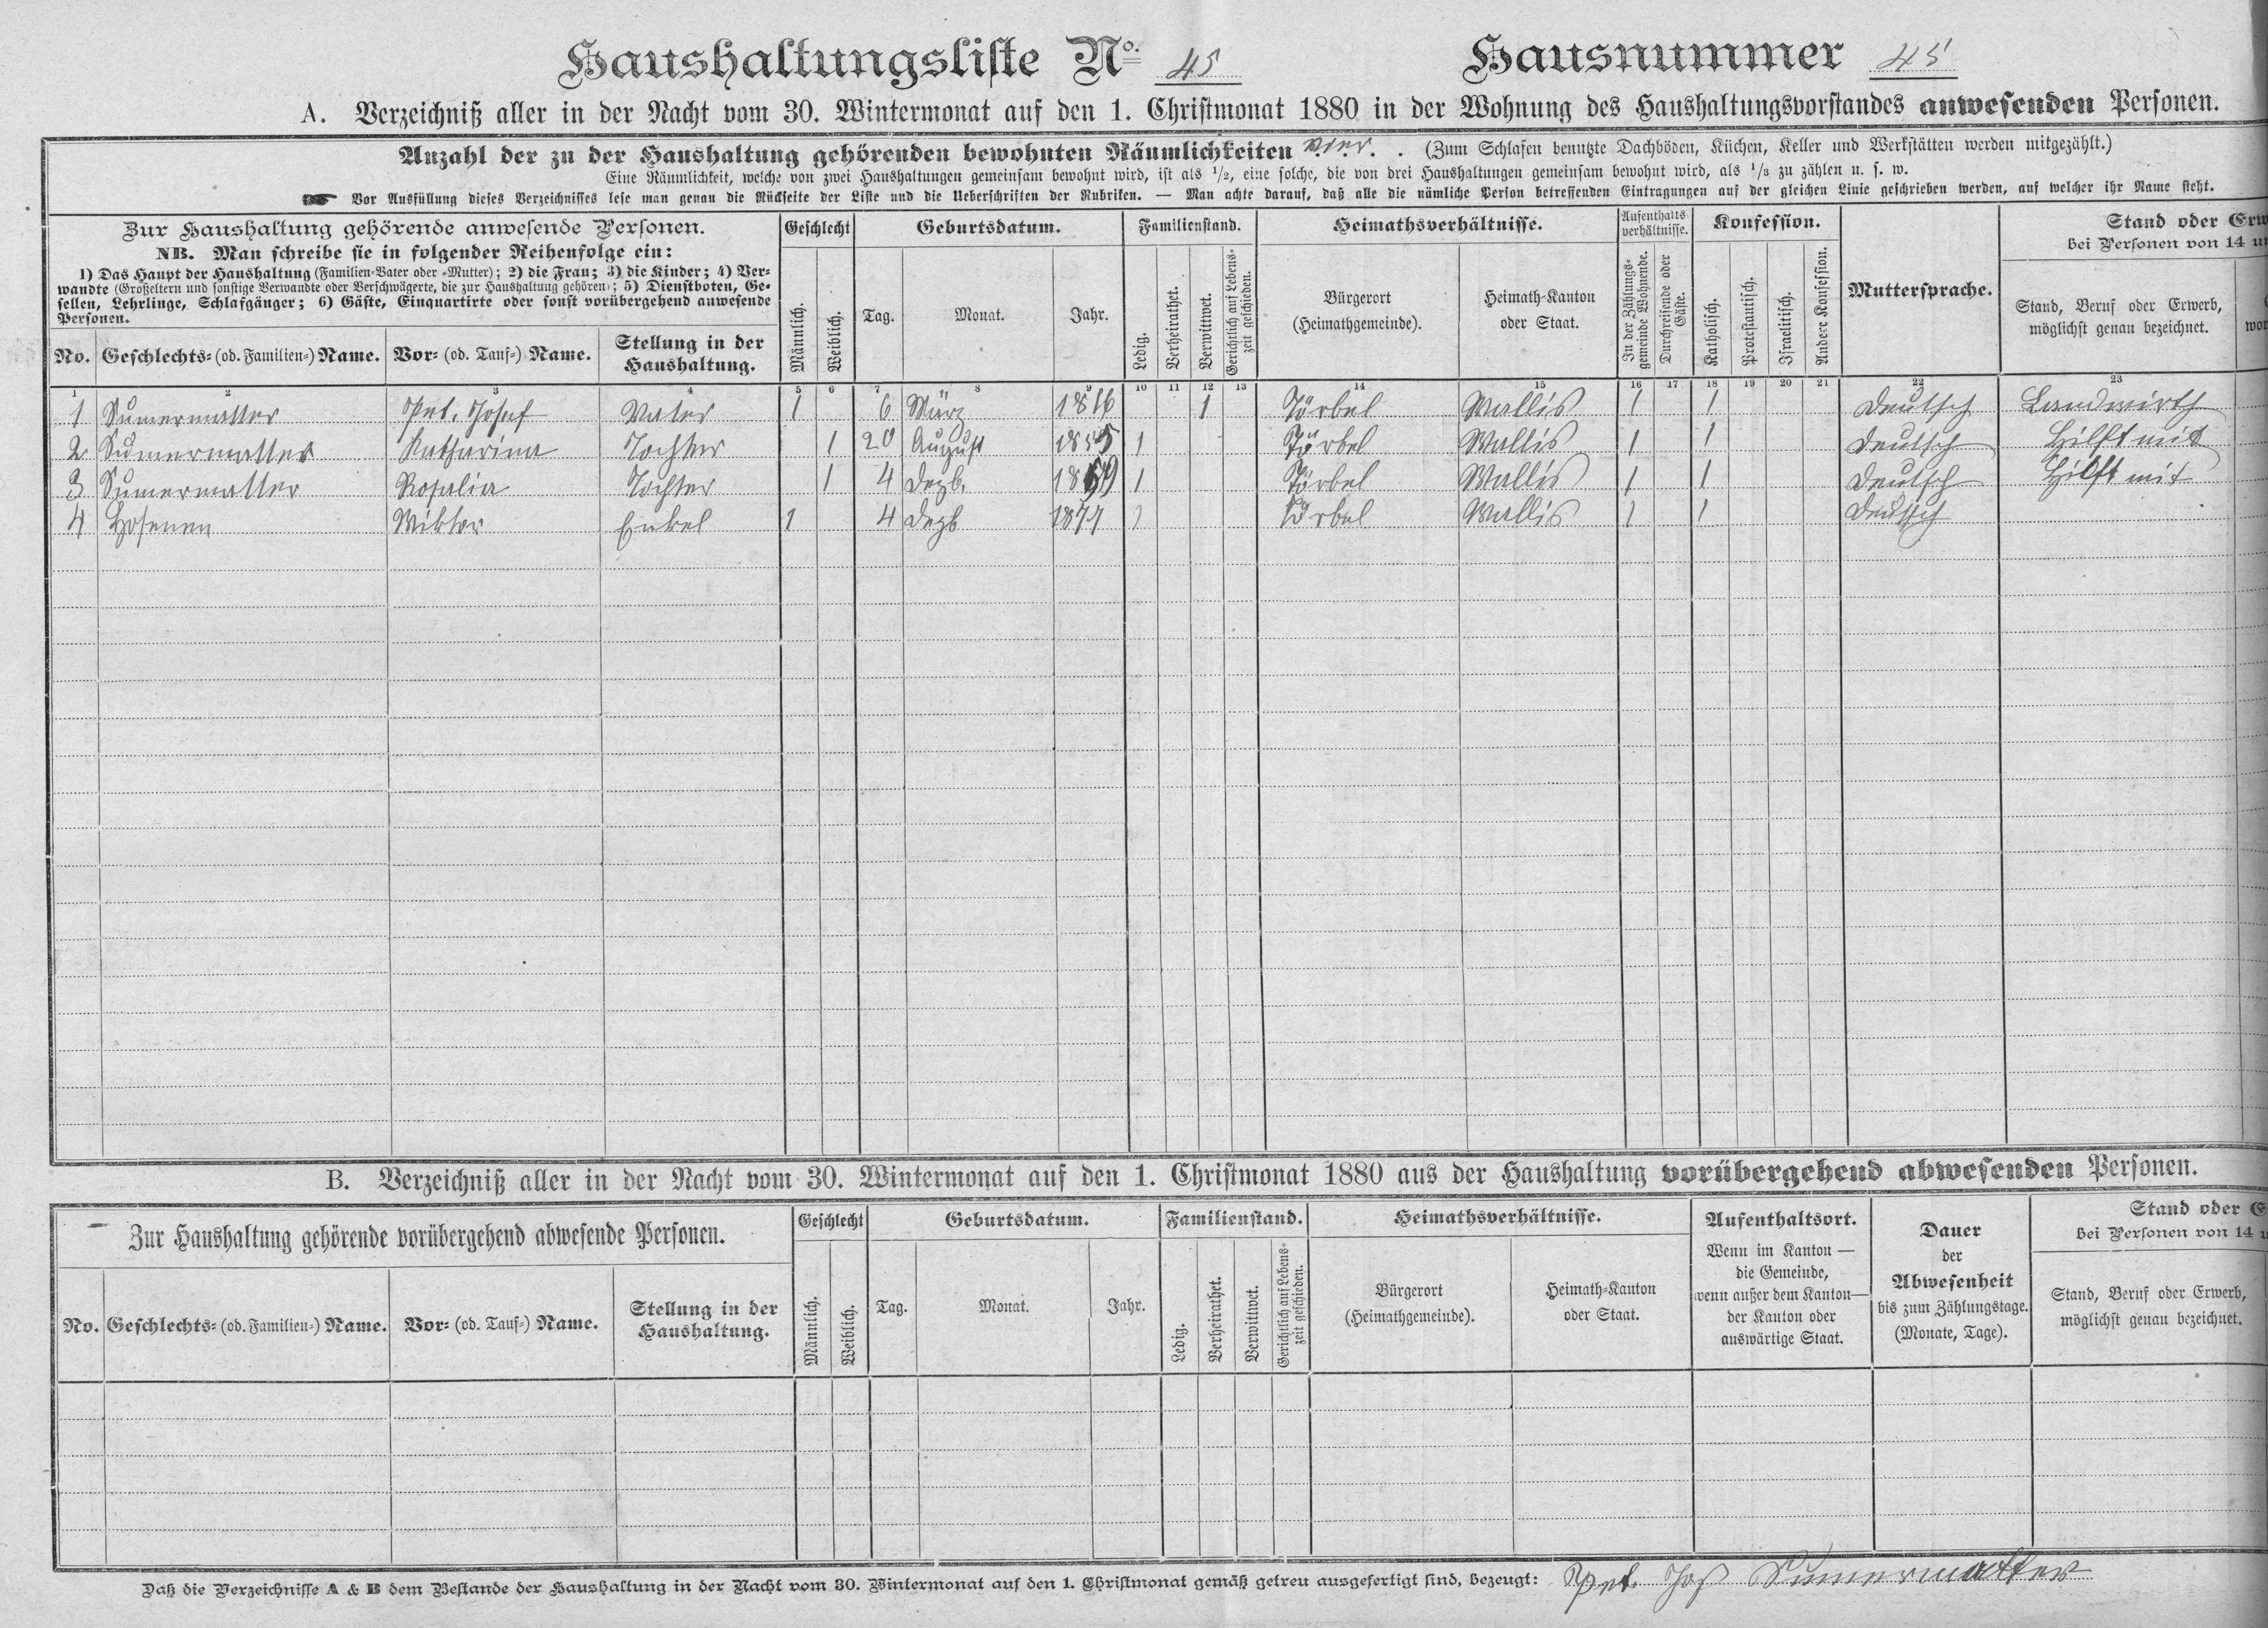 Haushaltungsliste No. 45 Hausnummer 45
A. Verzeichniß aller in der Nacht vom 30. Wintermonat auf den 1. Christmonat 1880 in der Wohnung des Haushaltungsvorstandes anwesenden Personen.
Anzahl der zu der Haushaltung gehörenden bewohnten Räumlichkeiten vier. . (Zum Schlafen benutzte Dachböden, Küchen, Keller und Werkstätten werden mitgezählt.)
Eine Räumlichkeit, welche von zwei Haushaltungen gemeinsam bewohnt wird, ist als 1/2, eine solche, die von drei Haushaltungen gemeinsam bewohnt wird, als 1/3 zu zählen u. s. w.
Vor Ausfüllung dieses Verzeichnisses lese man genau die Rückseite der Liste und die Ueberschriften der Rubriken. — Man achte darauf, daß alle die nämliche Person betreffenden Eintragungen auf der gleichen Linie geschrieben werden, auf welcher ihr Name steht.
Zur Haushaltung gehörende anwesende Personen.
NB. Man schreibe sie in folgender Reihenfolge ein:
1) Das Haupt der Haushaltung (Familien-Vater oder -Mutter); 2) die Frau; 3) die Kinder; 4) Ver-
wandte (Großeltern und sonstige Verwandte oder Verschwägerte, die zur Haushaltung gehören); 5) Dienstboten, Ge-
sellen, Lehrlinge, Schlafgänger; 6) Gäste, Einquartirte oder sonst vorübergehend anwesende
Personen.
No. Geschlechts- (od. Familien-) Name. Vor- (od. Tauf-) Name. Stellung in der
Haushaltung.
Geschlecht
Männlich. Weiblich.
Geburtsdatum.
Tag. Monat. Jahr.
Familienstand.
Ledig. Verheirathet. Verwittwet. Gerichtlich auf Lebens-
zeit geschieden.
Heimathsverhältnisse.
Bürgerort
(Heimathgemeinde).
Heimath-Kanton
oder Staat.
Aufenthalts-
verhältnisse.
In der Zählungs-
gemeinde Wohnende.
Durchreisende oder
Gäste.
Konfession.
Katholisch. Protestantisch. Israelitisch. Andere Konfession.
Muttersprache.
Stand oder Erw
bei Personen von 14 u
Stand, Beruf oder Erwerb,
möglichst genau bezeichnet.
wor
1 2 3 4 5 6 7 8 9 10 11 12 13 14 15 16 17 18 19 20 21 22 23
1 Sumermatter Pet. Josef Vater 1 6 März 1816 1 Törbel Wallis 1 1 Deutsch Landwirth
2 Sumermatter Katharina Tochter 1 20 August 1855 1 Törbel Wallis 1 1 Deutsch Hilft mit
3 Sumermatter Rosalia Tochter 1 4 Dezb. 1 Törbel Wallis 1 1 Deutsch Hilft mit
4 Hosenen Wiktor Enkel 1 4 Dezb 1877 1 Törbel Wallis 1 1 Deutsch
B. Verzeichniß aller in der Nacht vom 30. Wintermonat auf den 1. Christmonat 1880 aus der Haushaltung vorübergehend abwesenden Personen.
Zur Haushaltung gehörende vorübergehend abwesende Personen.
No. Geschlechts- (od. Familien-) Name. Vor- (od. Tauf-) Name. Stellung in der
Haushaltung.
Geschlecht
Männlich. Weiblich.
Geburtsdatum.
Tag. Monat. Jahr.
Familienstand.
Ledig. Verheirathet. Verwittwet. Gerichtlich auf Lebens-
zeit geschieden.
Heimathsverhältnisse.
Bürgerort
(Heimathgemeinde).
Heimath-Kanton
oder Staat.
Aufenthaltsort.
Wenn im Kanton —
die Gemeinde,
wenn außer dem Kanton—
der Kanton oder
auswärtige Staat.
Dauer
der
Abwesenheit
bis zum Zählungstage.
(Monate, Tage).
Stand oder E
bei Personen von 14 u
Stand, Beruf oder Erwerb,
möglichst genau bezeichnet.
Daß die Verzeichnisse A & B dem Bestande der Haushaltung in der Nacht vom 30. Wintermonat auf den 1. Christmonat gemäß getreu ausgefertigt sind, bezeugt: Pet. Jos Sumermatter